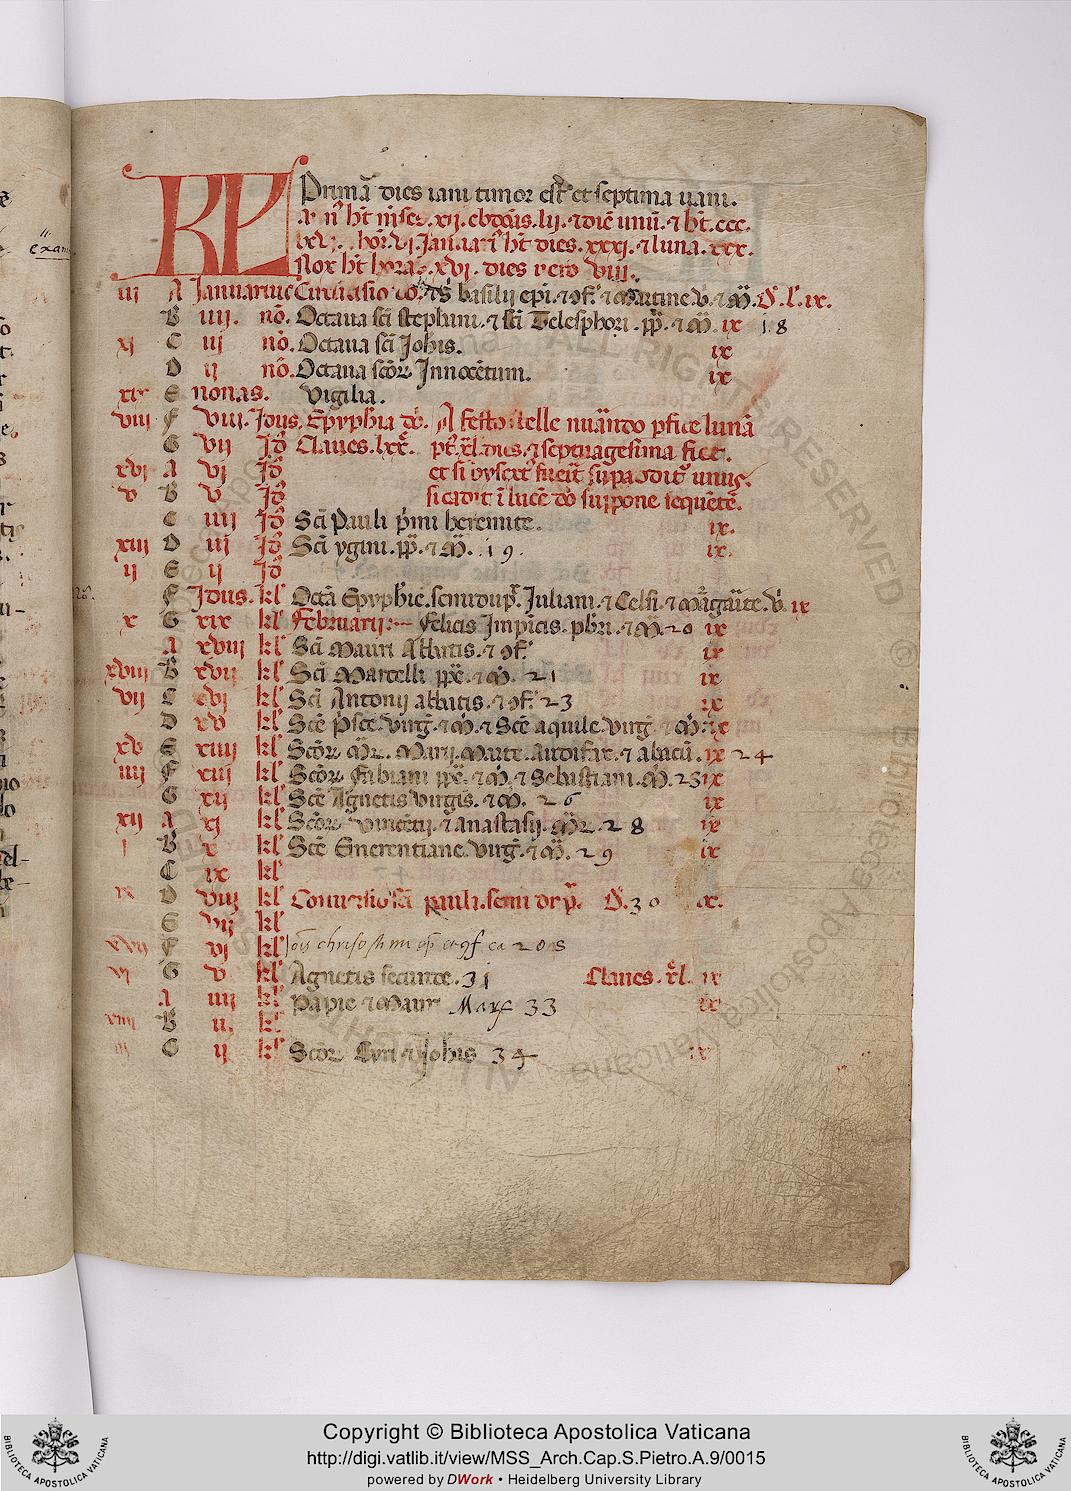 KL Primā dies iani timor est et septima uani.
ar nꝰ ht mēses. xii. ebdōās. lii. ⁊ diē unū. ⁊ ht. ccc.
lxv. hor. vi. Januariꝰ ht dies. xxxi. ⁊ luna. xxx.
Nox ht horas. xvi. dies uero viii.
iii A Januarius Circūcisio dō. ⁊ s̄ basilij epi. ⁊ ↄf. ⁊ Martine v. ⁊ M. D. l. ix.
B iiii. no. Octaua sci stephani. ⁊ sci Telesphori. pp. ⁊ M. ix 18
xi C iii no. Octaua sci Johis. ix
D ii no. Octaua scōr Innocētum. ix
xix E nonas. Vigilia.
viii F viii. Idus. Epyphia dō. A festo stelle numāndo pfice lunā
G vii Id Claues. lxx. pt. xl. dies. ⁊ septuagesima fiet.
xvi A vi Id et si bysext fuerit supaddit unus.
v B v Id si cadit ī lucē dō suppone sequētē.
C iiii Id Sci Pauli pmi heremite. ix.
xiii D iii Id Sci ygini. pp. ⁊ M. 19. ix.
ii E ii Id
F Idus. kl Octā Epyphie. semidup. Juliani. ⁊ Celsi. ⁊ M ix
x G xix kl Februarii: Felicis Impicis. pbri. ⁊ M. 20 ix
A xviii kl Sci Mauri Abbatis. ⁊ ↄf. ix
xviii B xvii kl Sci Marcelli pp. ⁊ M. 21 ix
vii C xvi kl Sci Antonij abbatis. ⁊ ↄf. 23 ix
D xv kl Sce Pisce. virg. ⁊ M. ⁊ Sce aquile. virg. ⁊ M. ix
xv E xiiii kl Scōr M. Marij. Marte. Audifax. ⁊ abacū. ix 24
iiii F xiii kl Scōr Fabiani pp. ⁊ M. ⁊ Sebastiani. M. 25 ix
G xii kl Sce Agnetis virgis. ⁊ M. 26 ix
xii A xi kl Scōr Vincētij. ⁊ anastasij. M. 28 ix
i B x kl Sce Emerentiane. virg. ⁊ M. 29 ix
C ix kl
ix D viii kl Conuersio sci pauli. semi dup. D. 30 ix.
E vii kl
xvii F vi kl Jois chrisostimi ep et ↄf
vi G v kl Agnetis secunde. 31 Claues. xl. ix
A iiii kl Papie ⁊ Mauri Mar 33 ix
xiiii B ii. kl
iii C ii kl Scōr Cyri ⁊ Johis 34 ix
Copyright © Biblioteca Apostolica Vaticana
http://digi.vatlib.it/view/MSS_Arch.Cap.S.Pietro.A.9/0015
powered by DWork • Heidelberg University Library
BIBLIOTECA APOSTOLICA VATICANA
BIBLIOTECA APOSTOLICA VATICANA